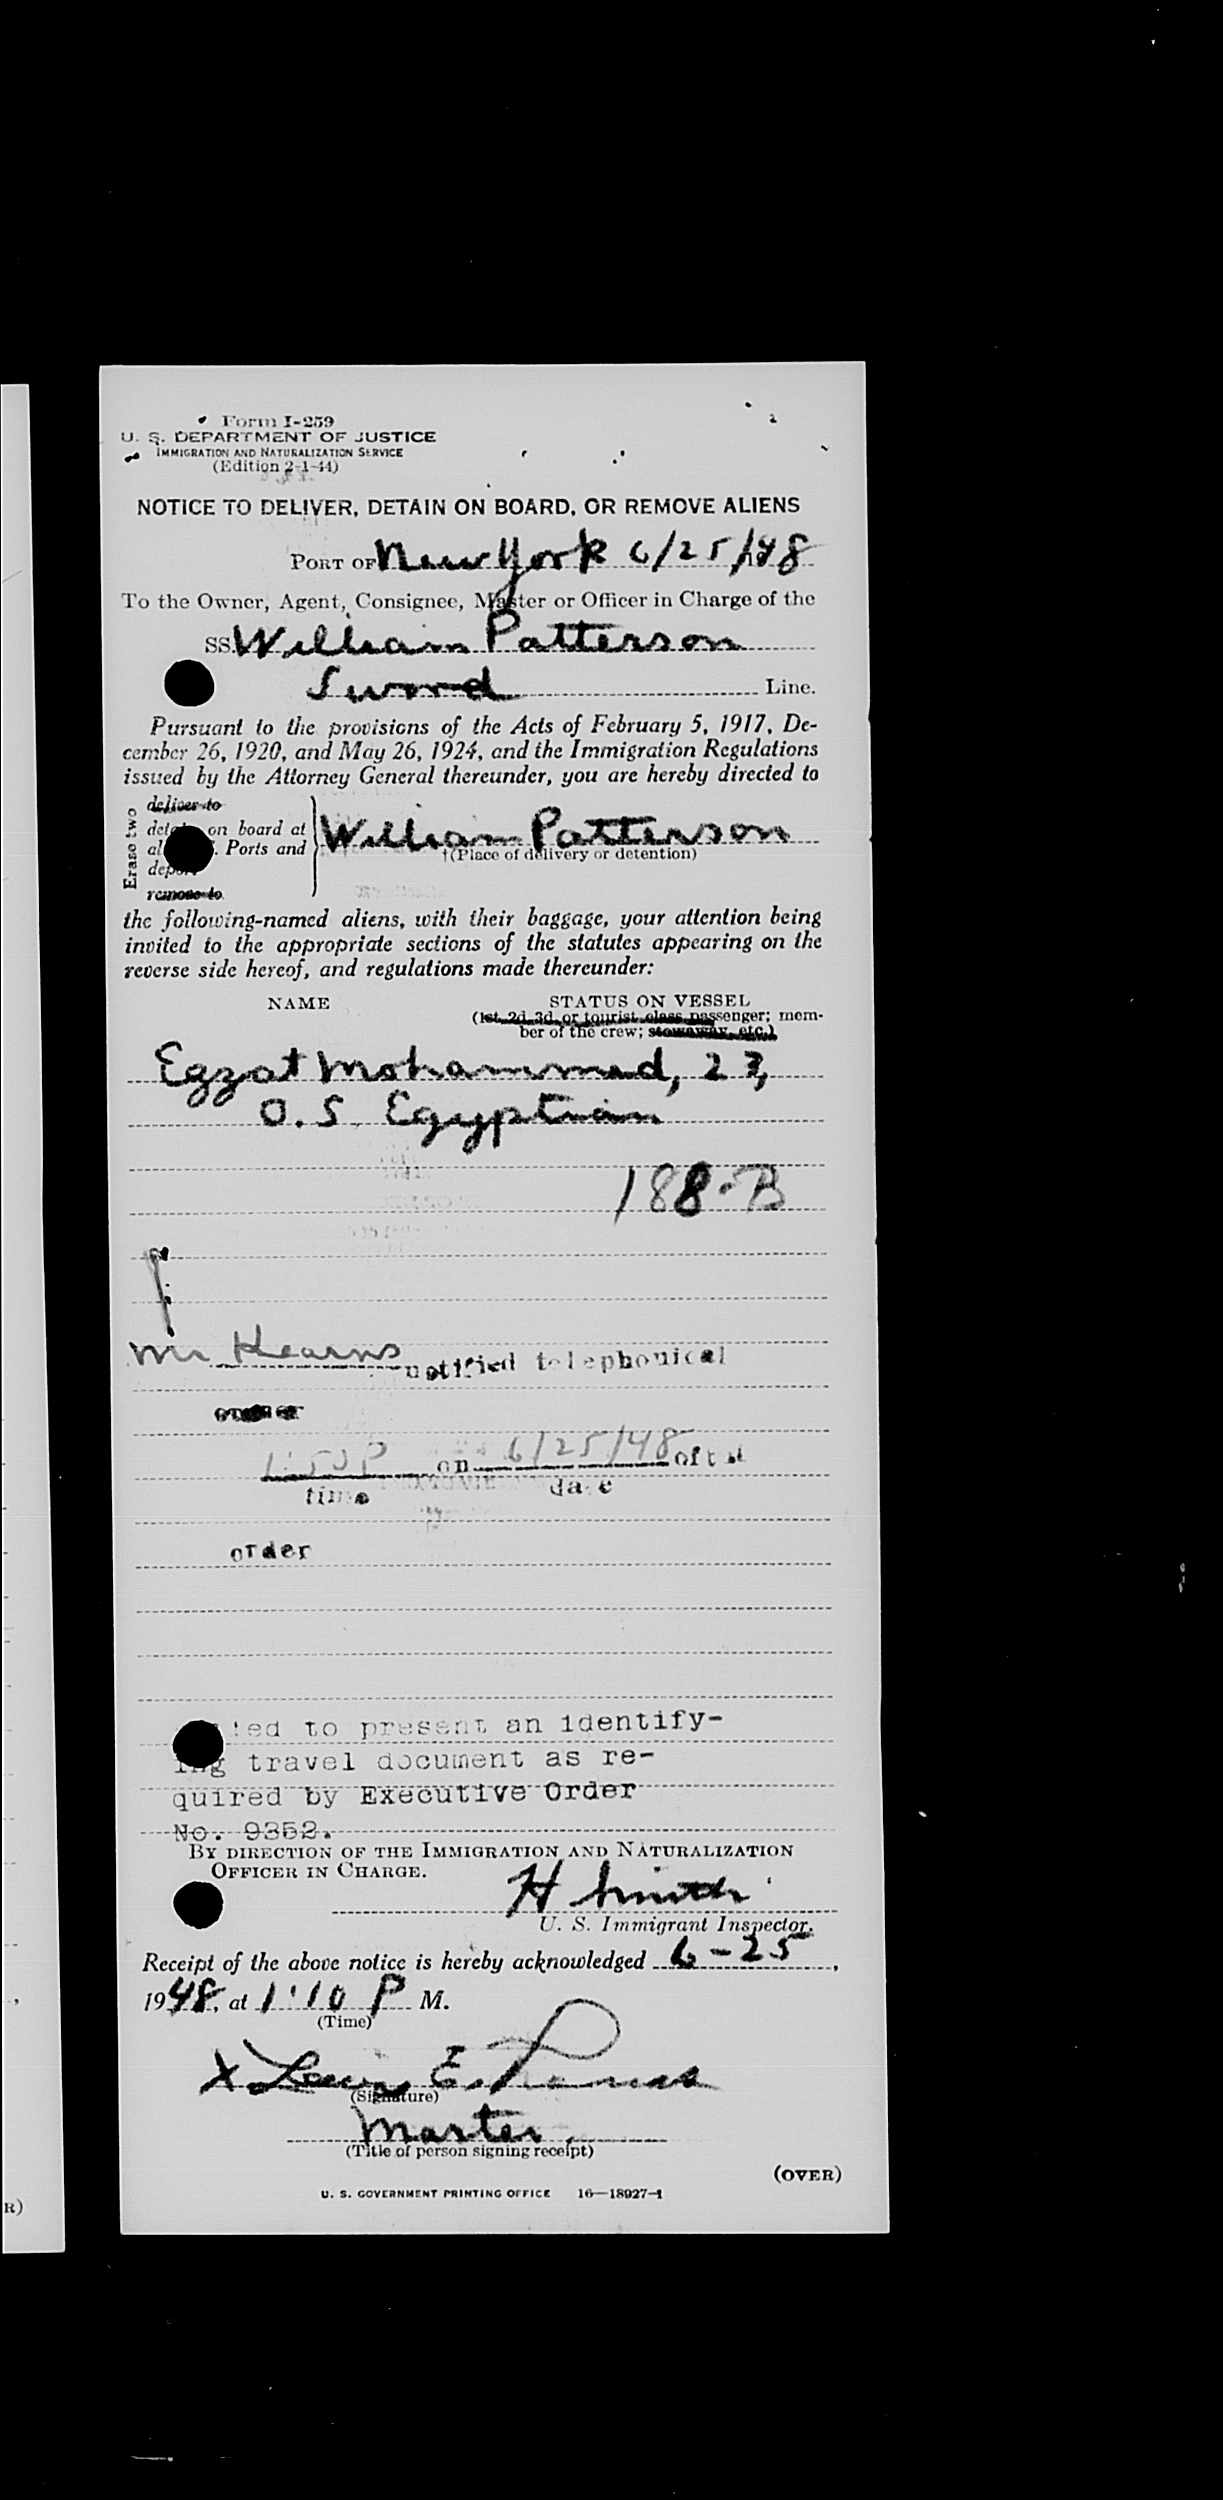 Form I-259
U. S. DEPARTMENT OF JUSTICE
IMMIGRATION AND NATURALIZATION SERVICE
(Edition 2-1-44)
NOTICE TO DELIVER, DETAIN ON BOARD, OR REMOVE ALIENS
PORT OF New York 6/25/48
To the Owner, Agent, Consignee, Master or Officer in Charge of the
SS. William Patterson
Sword Line.
Pursuant to the provisions of the Acts of February 5, 1917, De-
cember 26, 1920, and May 26, 1924, and the Immigration Regulations
issued by the Attorney General thereunder, you are hereby directed to
Erase two
deliver to
on board at
Ports and
remove to
William Patterson
†(Place of delivery or detention)
the following-named aliens, with their baggage, your attention being
invited to the appropriate sections of the statutes appearing on the
reverse side hereof, and regulations made thereunder:
NAME STATUS ON VESSEL
(1st, 2d, 3d, or tourist class passenger; mem-
ber of the crew; stowaway, etc.)
Egzat Mohammed, 23,
O.S. Egyptian
188-B
Mr Kearns notified telephonical
1:50 P on 6/25/48 of t
time date
order
to present an identify-
ing travel document as re-
quired by Executive Order
No. 9352.
BY DIRECTION OF THE IMMIGRATION AND NATURALIZATION
OFFICER IN CHARGE.
H Smith
U. S. Immigrant Inspector.
Receipt of the above notice is hereby acknowledged 6-25,
1948, at 1:10 P M.
(Time)
X Lewis E.
(Signature)
Master.
(Title of person signing receipt)
(OVER)
U. S. GOVERNMENT PRINTING OFFICE 16—18927-1
R)